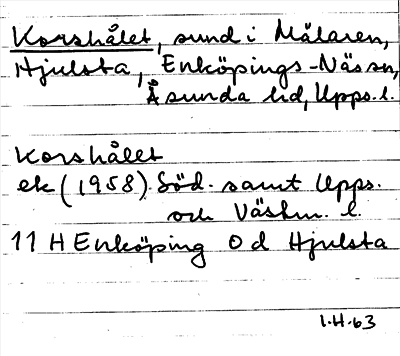 Korshålet, sund i Mälaren,
Hjulsta, Enköpings-Näs sn,
Åsunda hd, Upps. l.
Korshålet
ek (1958). Söd. samt Upps.
och Västm. l.
11 H Enköping 0 d Hjulsta
I.H.63